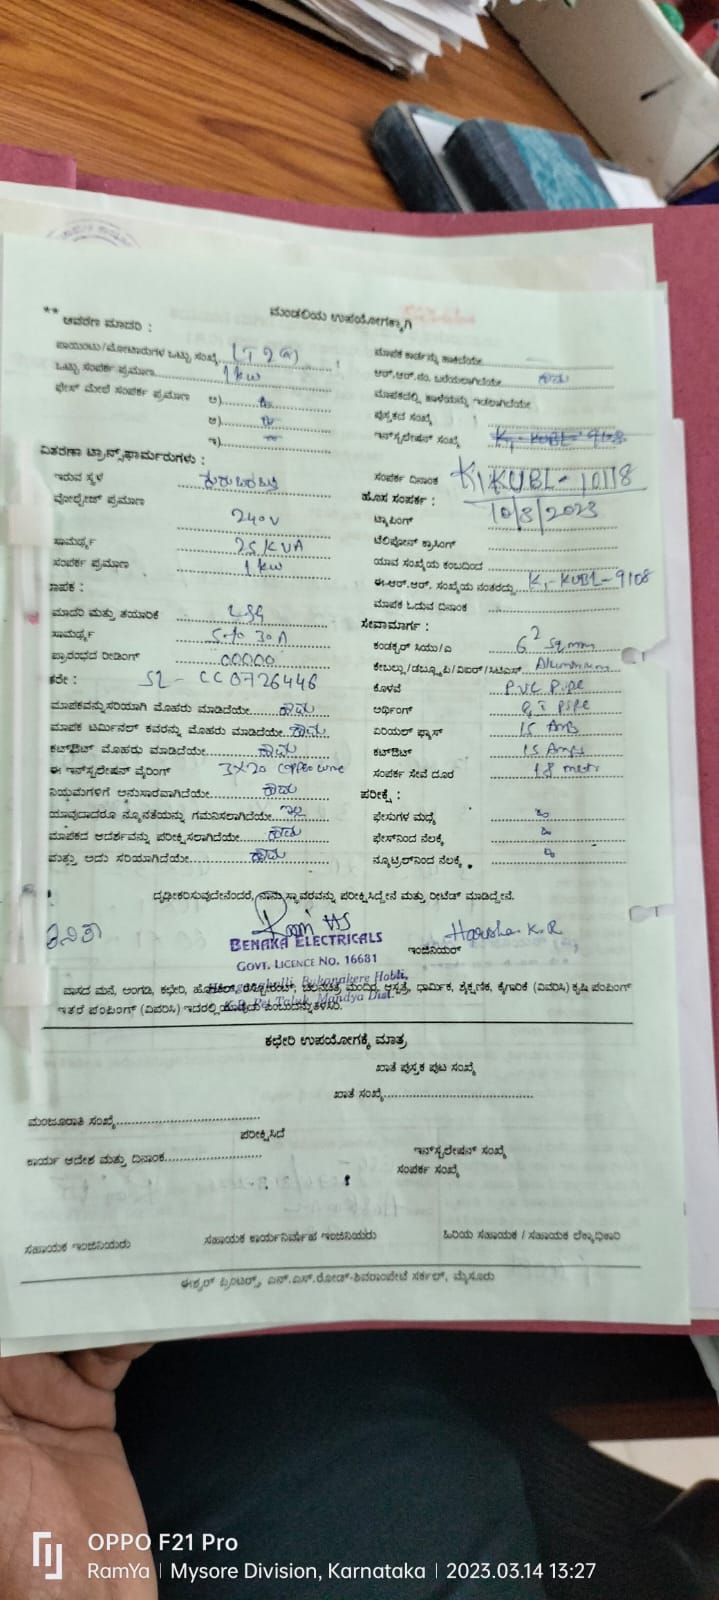 ** ಮಂಡಲಿಯ ಉಪಯೋಗಕ್ಕಾಗಿ
ಆವರಣ ಮಾದರಿ :
ಪಾಯಿಂಟು/ಮೋಟಾರುಗಳ ಒಟ್ಟು ಸಂಖ್ಯೆ LT 2(a)
ಒಟ್ಟು ಸಂಪರ್ಕ ಪ್ರಮಾಣ 1 kw
ಫೇಸ್ ಮೇಲೆ ಸಂಪರ್ಕ ಪ್ರಮಾಣ ಅ)
ಆ)
ಇ)
ವಿತರಣಾ ಟ್ರಾನ್ಸ್‌ಫಾರ್ಮರುಗಳು :
ಇರುವ ಸ್ಥಳ
ವೋಲ್ಟೇಜ್ ಪ್ರಮಾಣ
240V
ಸಾಮರ್ಥ್ಯ 25 KVA
ಸಂಪರ್ಕ ಪ್ರಮಾಣ 1 kw
ಮಾಪಕ :
ಮಾದರಿ ಮತ್ತು ತಯಾರಿಕೆ
ಸಾಮರ್ಥ್ಯ 5 to 30A
ಪ್ರಾರಂಭದ ರೀಡಿಂಗ್ 00000
ಕರೇ : SL - CC0726446
ಮಾಪಕವನ್ನು ಸರಿಯಾಗಿ ಮೊಹರು ಮಾಡಿದೆಯೇ ಹೌದು
ಮಾಪಕ ಟರ್ಮಿನಲ್ ಕವರನ್ನು ಮೊಹರು ಮಾಡಿದೆಯೇ ಹೌದು
ಕಟ್‌ಔಟ್ ಮೊಹರು ಮಾಡಿದೆಯೇ ಹೌದು
ಈ ಇನ್‌ಸ್ಟಲೇಷನ್ ವೈರಿಂಗ್ 3x20 copper wire
ನಿಯಮಗಳಿಗೆ ಅನುಸಾರವಾಗಿದೆಯೇ ಹೌದು
ಯಾವುದಾದರೂ ನ್ಯೂನತೆಯನ್ನು ಗಮನಿಸಲಾಗಿದೆಯೇ ಇಲ್ಲ
ಮಾಪಕದ ಆದರ್ಶವನ್ನು ಪರೀಕ್ಷಿಸಲಾಗಿದೆಯೇ ಹೌದು
ಮತ್ತು ಅದು ಸರಿಯಾಗಿದೆಯೇ ಹೌದು
ಮಾಪಕ ಕಾರ್ಡನ್ನು ಹಾಕಿದೆಯೇ
ಆರ್.ಆರ್.ನಂ. ಬರೆಯಲಾಗಿದೆಯೇ ಹೌದು
ಮಾಪಕದಲ್ಲಿ ಹಾಳೆಯನ್ನು ಇಡಲಾಗಿದೆಯೇ
ಪುಸ್ತಕದ ಸಂಖ್ಯೆ
ಇನ್‌ಸ್ಟಲೇಷನ್ ಸಂಖ್ಯೆ K1-KUBL-9108
ಸಂಪರ್ಕ ದಿನಾಂಕ K1KUBL-10118
ಹೊಸ ಸಂಪರ್ಕ : 10/3/2023
ಟ್ಯಾಪಿಂಗ್
ಟೆಲಿಫೋನ್ ಕ್ರಾಸಿಂಗ್
ಯಾವ ಸಂಖ್ಯೆಯ ಕಂಬದಿಂದ
ಈ-ಆರ್.ಆರ್. ಸಂಖ್ಯೆಯ ನಂತರದ್ದು K1-KUBL-9108
ಮಾಪಕ ಓದುವ ದಿನಾಂಕ
ಸೇವಾಮಾರ್ಗ :
ಕಂಡಕ್ಟರ್ ಸಿಯು/ಎ 6² sqmm
ಕೇಬಲ್ಲು/ಡಬ್ಲ್ಯೂಪಿ/ವಿಐಆರ್/ಸಿಟಿಎಸ್ Aluminium
ಕೊಳವೆ PVC Pipe
ಅರ್ಥಿಂಗ್ GI pipe
ಏರಿಯಲ್ ಫ್ಯೂಸ್ 15 Amp
ಕಟ್‌ಔಟ್ 15 Amps
ಸಂಪರ್ಕ ಸೇವೆ ದೂರ 18 metr
ಪರೀಕ್ಷೆ :
ಫೇಸುಗಳ ಮಧ್ಯೆ
ಫೇಸ್‌ನಿಂದ ನೆಲಕ್ಕೆ
ನ್ಯೂಟ್ರಲ್‌ನಿಂದ ನೆಲಕ್ಕೆ
ದೃಢೀಕರಿಸುವುದೇನೆಂದರೆ, ನಾನು ಸ್ಥಾವರವನ್ನು ಪರೀಕ್ಷಿಸಿದ್ದೇನೆ ಮತ್ತು ರೀಟೆಡ್ ಮಾಡಿದ್ದೇನೆ.
BENAKA ELECTRICALS
GOVT. LICENCE NO. 16681
Bukanakere Hobli,
K.R. Pet Taluk, Mandya Dist.
ಇಂಜಿನಿಯರ್ Harsha K.R
ವಾಸದ ಮನೆ, ಅಂಗಡಿ, ಕಛೇರಿ, ಹೋಟೆಲ್, ರೆಸ್ಟೋರೆಂಟ್, ಚಲನಚಿತ್ರ ಮಂದಿರ, ಆಸ್ಪತ್ರೆ, ಧಾರ್ಮಿಕ, ಶೈಕ್ಷಣಿಕ, ಕೈಗಾರಿಕೆ (ವಿವರಿಸಿ) ಕೃಷಿ ಪಂಪಿಂಗ್
ಇತರೆ ಪಂಪಿಂಗ್ (ವಿವರಿಸಿ)
ಕಛೇರಿ ಉಪಯೋಗಕ್ಕೆ ಮಾತ್ರ
ಖಾತೆ ಪುಸ್ತಕ ಪುಟ ಸಂಖ್ಯೆ
ಖಾತೆ ಸಂಖ್ಯೆ
ಮಂಜೂರಾತಿ ಸಂಖ್ಯೆ
ಪರೀಕ್ಷಿಸಿದೆ
ಕಾರ್ಯ ಆದೇಶ ಮತ್ತು ದಿನಾಂಕ
ಇನ್‌ಸ್ಟಲೇಷನ್ ಸಂಖ್ಯೆ
ಸಂಪರ್ಕ ಸಂಖ್ಯೆ
ಸಹಾಯಕ ಇಂಜಿನಿಯರು ಸಹಾಯಕ ಕಾರ್ಯನಿರ್ವಾಹ ಇಂಜಿನಿಯರು ಹಿರಿಯ ಸಹಾಯಕ / ಸಹಾಯಕ ಲೆಕ್ಕಾಧಿಕಾರಿ
ಈಶ್ವರ್ ಪ್ರಿಂಟರ್ಸ್, ಎನ್.ಎಸ್.ರೋಡ್-ಶಿವರಾಂಪೇಟೆ ಸರ್ಕಲ್, ಮೈಸೂರು
OPPO F21 Pro
RamYa | Mysore Division, Karnataka | 2023.03.14 13:27